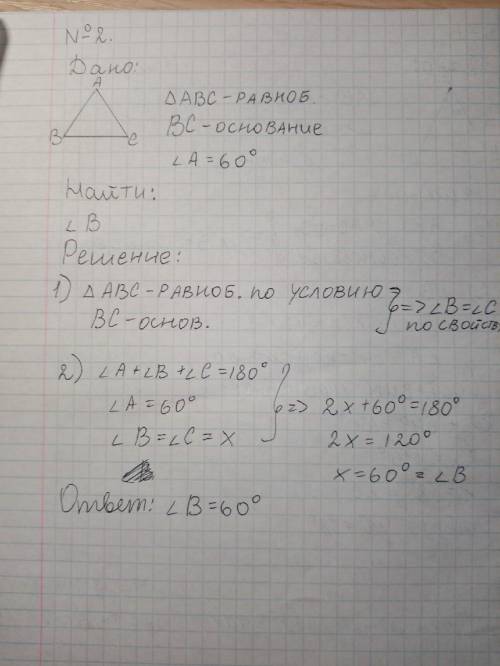 №2.
Дано:
A
B
C
△ABC - РАВНОБ.
BC - основание
∠A = 60°
Найти:
∠B
Решение:
1) △ABC - РАВНОБ. по условию
BC - основ.
=> ∠B = ∠C
по свойств.
2) ∠A + ∠B + ∠C = 180°
∠A = 60°
∠B = ∠C = x
=> 2x + 60° = 180°
2x = 120°
x = 60° = ∠B
Ответ: ∠B = 60°